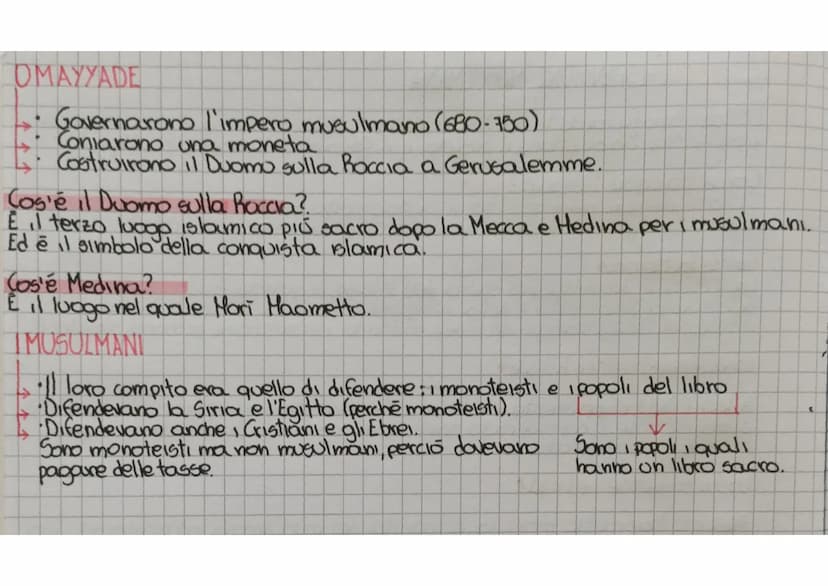 OMAYYADE
· Governarono l'impero musulmano (680-750)
· Coniarono una moneta
· Costruirono il Duomo sulla Roccia a Gerusalemme.
Cos'é il Duomo sulla Roccia?
É il terzo luogo islamico piú sacro dopo la Mecca e Medina per i musulmani.
Ed é il simbolo della conquista islamica.
Cos'é Medina?
É il luogo nel quale Morí Maometto.
I MUSULMANI
· Il loro compito era quello di difendere: i monoteisti e i popoli del libro
· Difendevano la Siria e l'Egitto (perché monoteisti).
· Difendevano anche i Cristiani e gli Ebrei.
Sono monoteisti ma non musulmani, perció dovevano
pagare delle tasse.
Sono i popoli i quali
hanno un libro sacro.